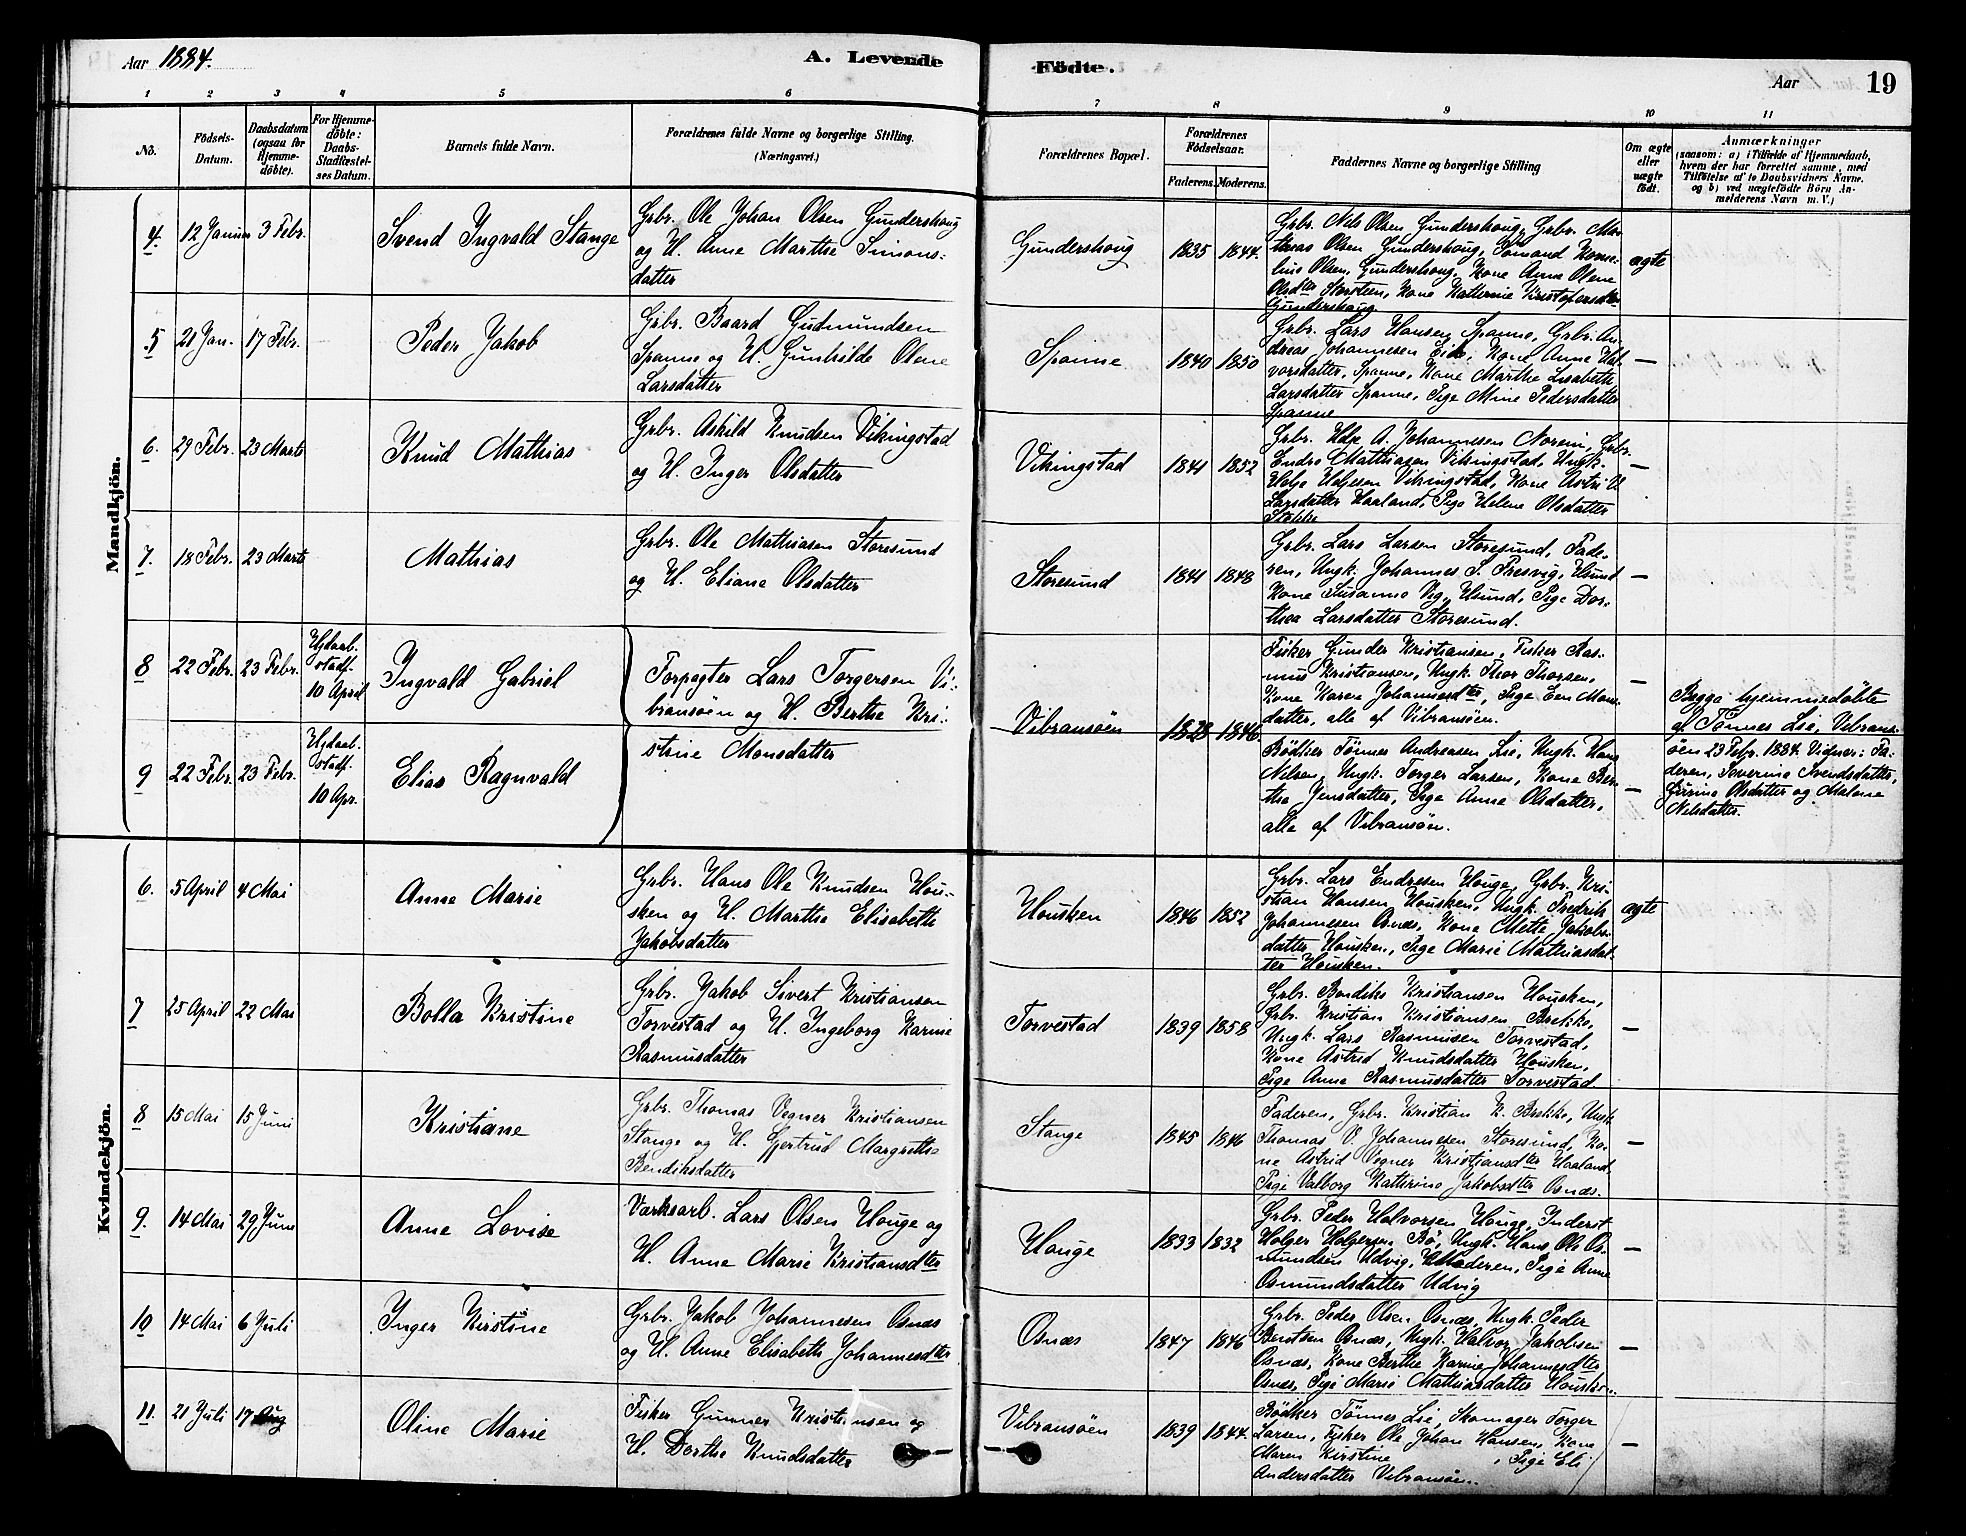 Aar 1884.
A. Levende
Födte.
Aar
19
1 2 3 4 5 6
7 8 9 10 11
No.
Födsels-
Datum.
Daabsdatum
(ogsaa for
Hjemme-
döbte).
For Hjemme-
döbte:
Daabs-
Stadfæstel-
ses Datum.
Barnets fulde Navn.
Forældrenes fulde Navne og borgerlige Stilling.
(Næringsvei.)
Forældrenes Bopæl.
Forældrenes
Födselsaar.
Faderens. Moderens.
Faddernes Navne og borgerlige Stilling
Om ægte
eller
uægte
födt.
Anmærkninger
(saasom: a) i Tilfælde af Hjemmedaab,
hvem der har forrettet samme, med
Tilföielse af to Daabsvidners Navne.
og b) ved uægtefödte Börn An-
melderens Navn m. V.)
Mandkjön.
4. 12 Januar 3 Febr.
Svend Ingvald Stange
Grbr. Ole Johan Olsen Gundershaug
og H. Anne Marthe Simons-
datter
Gundershaug 1835 1844.
Grbr. Nils Olsen Gundershaug, Grbr. Ma-
thias Olsen Gundershaug, Sömand Korne-
lius Olsen, Gundershaug, Kone Anne Olene
Olsdter Storsteen, Kone Katherine Kristofersdtr
Gundershaug
ægte
5 21 Jan. 17 Febr.
Peder Jakob
Grbr. Baard Gudmundsen
Spanne og H. Gunhilde Olene
Larsdatter
Spanne 1840 1850
Grbr. Lars Hansen Spanne, Grbr. An-
dreas Johannesen Eide, Kone Anne Hal-
vorsdatter, Spanne, Kone Marthe Lisabeth
Larsdatter Spanne, Pige Mine Pedersdatter
Spanne
—
6. 29 Febr. 23 Marts
Knud Mathias
Grbr. Askild Knudsen Vikingstad
og H. Inger Olsdatter
Vikingstad 1841 1852
Grbr. Helje A. Johannesen Norein, Grbr.
Endre Matthiasen Vikingstad, Ungk.
Helje Heljesen Vikingstad, Kone Astri H
Larsdatter Haaland, Pige Helene Olsdatter
Stakke
—
7. 18 Febr. 23 Marts
Mathias
Grbr. Ole Mathiasen Storesund
og H. Eliane Olsdatter
Storesund 1841 1848
Grbr. Lars Larsen Storesund, Fade-
ren, Ungk. Johannes S. Presvig, Husund
Kone Susanne Vig, Husund, Pige Dor-
thea Larsdatter Storesund.
—
8 22 Febr. 23 Febr. Hjdaab. stadf. 10 April
Ingvald Gabriel
Forpagter Lars Torgersen Vi-
bransöen og H. Berthe Kri-
stine Monsdatter
Vibransöen 1828 1846
Fisker Gunder Kristiansen, Fisker Ras-
mus Kristiansen, Ungk. Thor Thorsen,
Kone Karen Johannesdter, Pige Een Mons-
datter, alle af Vibransöen.
—
Begge hjemmedöbte
af Tönnes Lie, Vibrans-
öen 23 Febr. 1884. Vidner: Fa-
deren, Severine Svendsdatter,
Gurine Olsdatter og Malene
Nelsdatter.
9 22 Febr. 23 Febr. Hjdaab. stadf. 10 Apr.
Elias Ragnvald
Bödker Tönnes Andreasen Lie, Ungk. Hans
Nelsen, Ungk. Torger Larsen, Kone Ber-
the Jensdatter, Pige Anne Olsdatter,
alle af Vibransöen.
—
Kvindekjön.
6. 5 April 4 Mai
Anne Marie
Grbr. Hans Ole Knudsen Hou-
sken og H. Marthe Elisabeth
Jakobsdatter
Housken 1846 1852
Grbr. Lars Endresen Houge, Grbr. Kri-
stian Hansen Housken, Ungk. Fredrik
Johannesen Osnæs, Kone Mette Jakobs-
datter Housken, Pige Marie Mathiasdat-
ter Housken.
ægte
7 25 April 22 Mai
Bolla Kristine
Grbr. Jakob Sivert Kristiansen
Torvestad og H. Ingeborg Karine
Rasmusdatter
Torvestad 1839 1858
Grbr. Bendiks Kristiansen Housken,
Grbr. Kristian Kristiansen Brekke,
Ungk. Lars Rasmusen Torvestad,
Kone Astrid Knudsdatter Housken,
Pige Anne Rasmusdatter Torvestad
—
8 15 Mai 15 Juni
Kristiane
Grbr. Thomas Vegner Kristiansen
Stange og H. Gjertrud Margrethe
Bendiksdatter
Stange 1845 1846
Faderen, Grbr. Kristian K. Brekke, Ungk.
Thomas V. Johannesen Storesund, Ko-
ne Astrid Vegner Kristiansdter Haaland,
Pige Valborg Kathrine Jakobsdter Osnæs.
—
9. 14 Mai 29 Juni
Anne Lovise
Værksarb. Lars Olsen Houge og
H. Anne Marie Kristiansdter
Houge 1833 1832
Grbr. Peder Halvorsen Houge, Inderst
Holger Holgersen Bö, Ungk. Hans Ole Os-
mundsen Udvig, Moderen, Pige Anne
Osmundsdatter Udvig
—
10 14 Mai 6 Juli
Inger Kirstine
Grbr. Jakob Johannesen Osnæs
og H. Anne Elisabeth Johannesdter
Osnæs 1847 1846
Grbr. Peder Olsen Osnæs, Ungk. Peder
Bentsen Osnæs, Ungk. Halvor Jakobsen
Osnæs, Kone Berthe Karine Johannesdter
Osnæs, Pige Marie Mathiasdatter Housken.
—
11. 21 Juli 17 Aug
Oline Marie
Fisker Gunner Kristiansen og
H. Dorthe Knudsdatter
Vibransöen 1839 1844.
Bödker Tönnes Lie, Skomager Torger
Larsen, Fisker Ole Johan Hansen, Kone
Maren Kirstine , Pige Eli
Andersdatter Vibransöen.
—